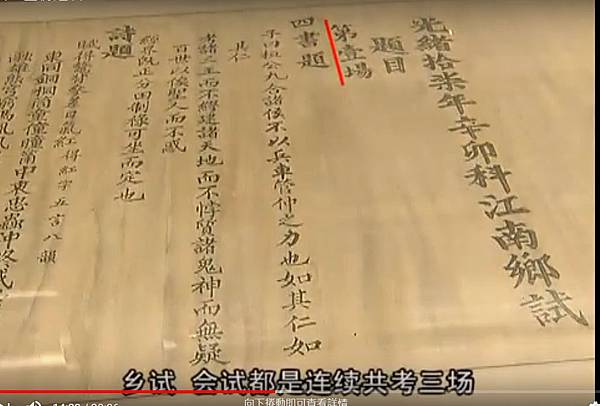 光緒拾柒年辛卯科江南鄉試
題目
第壹場
四書題
子曰桓公九合諸侯不以兵車管仲之力也如其仁如
其仁
考諸三王而不繆建諸天地而不悖質諸鬼神而無疑
百世以俟聖人而不惑
經界既正分田制祿可坐而定也
詩題
賦得 得紅字五言八韻
東同銅桐筒童僮瞳 中衷忠蟲沖終戎
融雄熊宮窮馮風
乡试 会试都是连续共考三场
向下捲動即可查看詳情